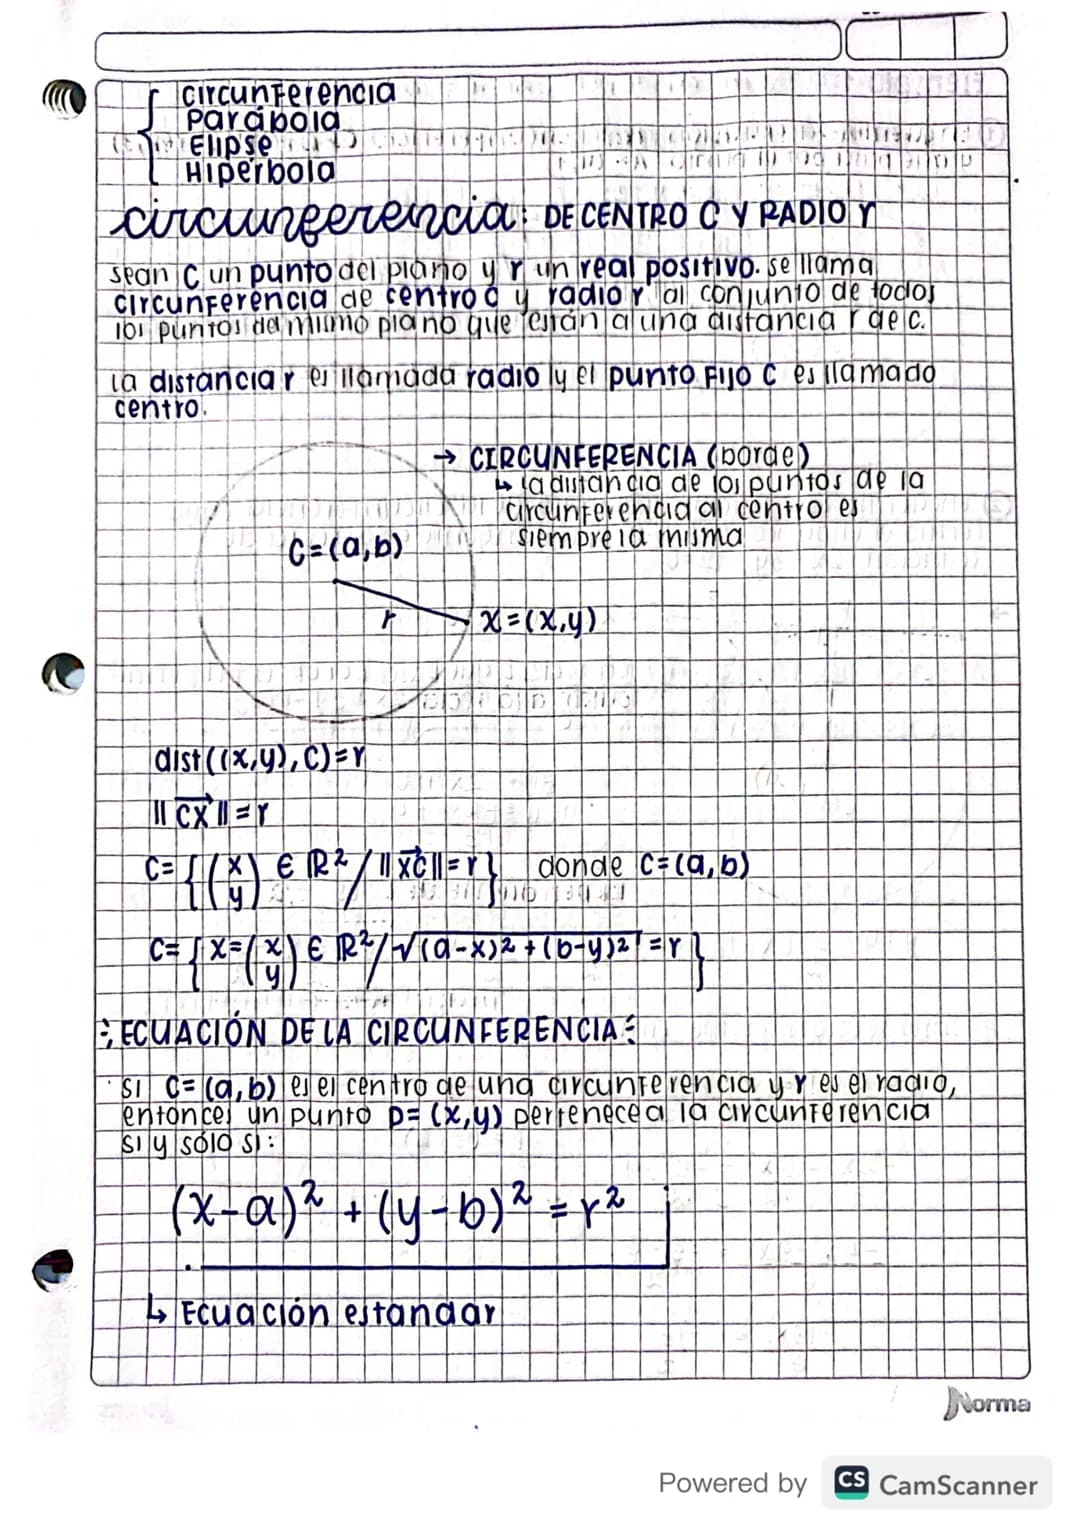 circunferencia
Parábola
Elipse
Hiperbola
circunferencia: DE CENTRO C Y RADIO r
sean C un punto del plano y r un real positivo. se llama
circunferencia de centro c y radio r al conjunto de todos
los puntos del mismo plano que están a una distancia r de c.
La distancia r es llamada radio y el punto Fijo C es llamado
centro.
→ CIRCUNFERENCIA (borde)
↳ la distancia de los puntos de la
circunferencia al centro es
siempre la misma
C=(a,b)
r
X=(x,y)
dist((x,y),C)=r
||CX⃗||=r
C={(x y) ∈ ℝ²/||XC⃗||=r} donde C=(a,b)
C={X=(x y) ∈ ℝ²/√(a-x)2+(b-y)2=r}
ECUACIÓN DE LA CIRCUNFERENCIA
· si C=(a,b) es el centro de una circunferencia y r es el radio,
entonces un punto P=(x,y) pertenece a la circunferencia
si y sólo si:
(x-a)² + (y-b)² = r²
↳ Ecuación estandar
Norma
Powered by CS CamScanner